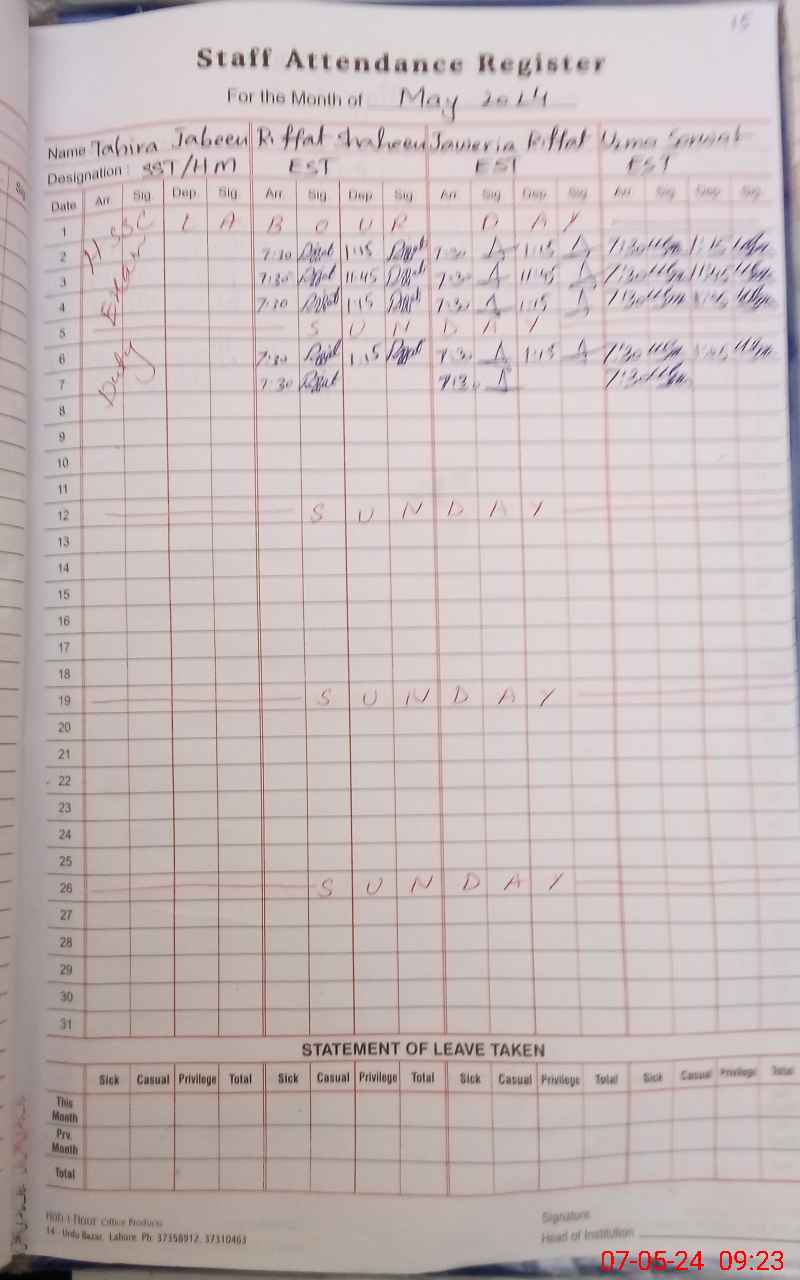 15
Staff Attendance Register
For the Month of May 2024
Name Tahira Jabeen Riffat Shaheen Jaweria Riffat Uzma Sarwat
Designation: SST/HM EST EST EST
Date Arr. Sig. Dep. Sig. Arr. Sig. Dep. Sig. Arr. Sig. Dep. Sig. Arr. Sig. Dep. Sig.
1 L A B O U R D A Y
HSSC Exam Duty
2 7:30 1:15 7:30 1:15 7:30 1:15
3 7:30 11:45 7:30 11:45 7:30 11:45
4 7:30 1:15 7:30 1:15 7:30 1:15
5 S U N D A Y
6 7:30 1:15 7:30 1:15 7:30 1:15
7 7:30 7:30 7:30
8
9
10
11
12 S U N D A Y
13
14
15
16
17
18
19 S U N D A Y
20
21
22
23
24
25
26 S U N D A Y
27
28
29
30
31
STATEMENT OF LEAVE TAKEN
Sick Casual Privilege Total Sick Casual Privilege Total Sick Casual Privilege Total Sick Casual Privilege Total
This Month
Prv. Month
Total
Office Products
14 - Urdu Bazar, Lahore. Ph: 37358912, 37310463
Signature
Head of Institution
07-05-24 09:23